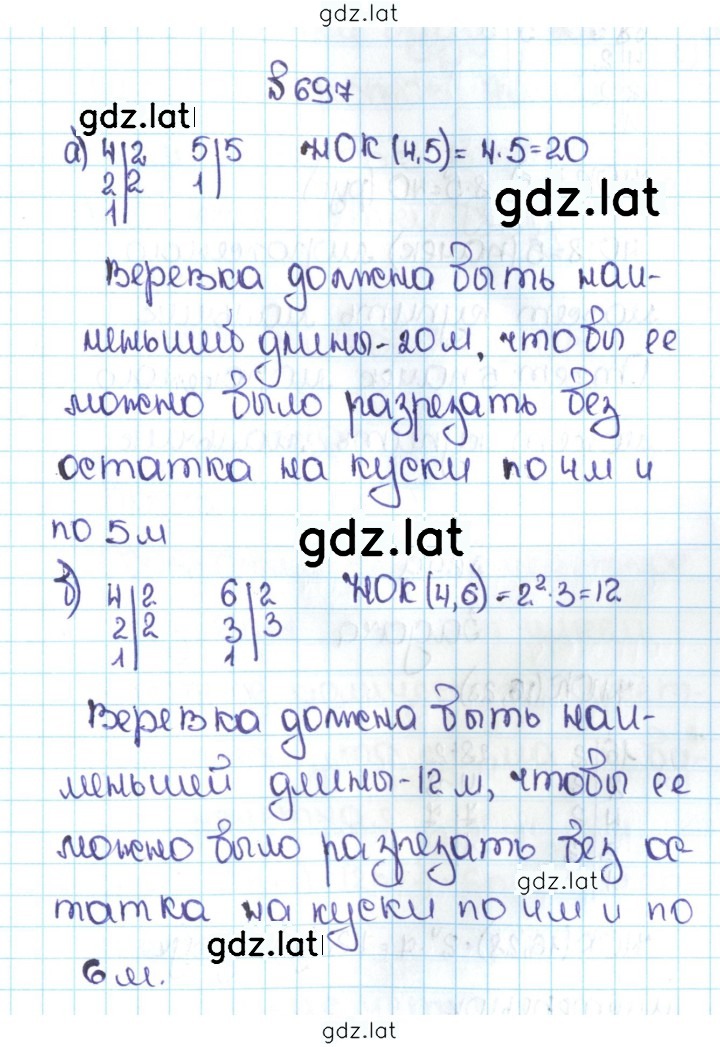 gdz.lat
№697
gdz.lat
а) 4|2 5|5 НОК (4,5) = 4·5=20
2|2 1|
1|
gdz.lat
Веревка должна быть наи-
меньшей длины-20м, чтобы ее
можно было разрезать без
остатка на куски по 4м и
по 5м
gdz.lat
б) 4|2 6|2 НОК (4,6) = 2²·3=12
2|2 3|3
1| 1|
Веревка должна быть наи-
меньшей длины-12м, чтобы ее
можно было разрезать без ос
gdz.lat
татка на куски по 4м и по
gdz.lat
6м.
gdz.lat